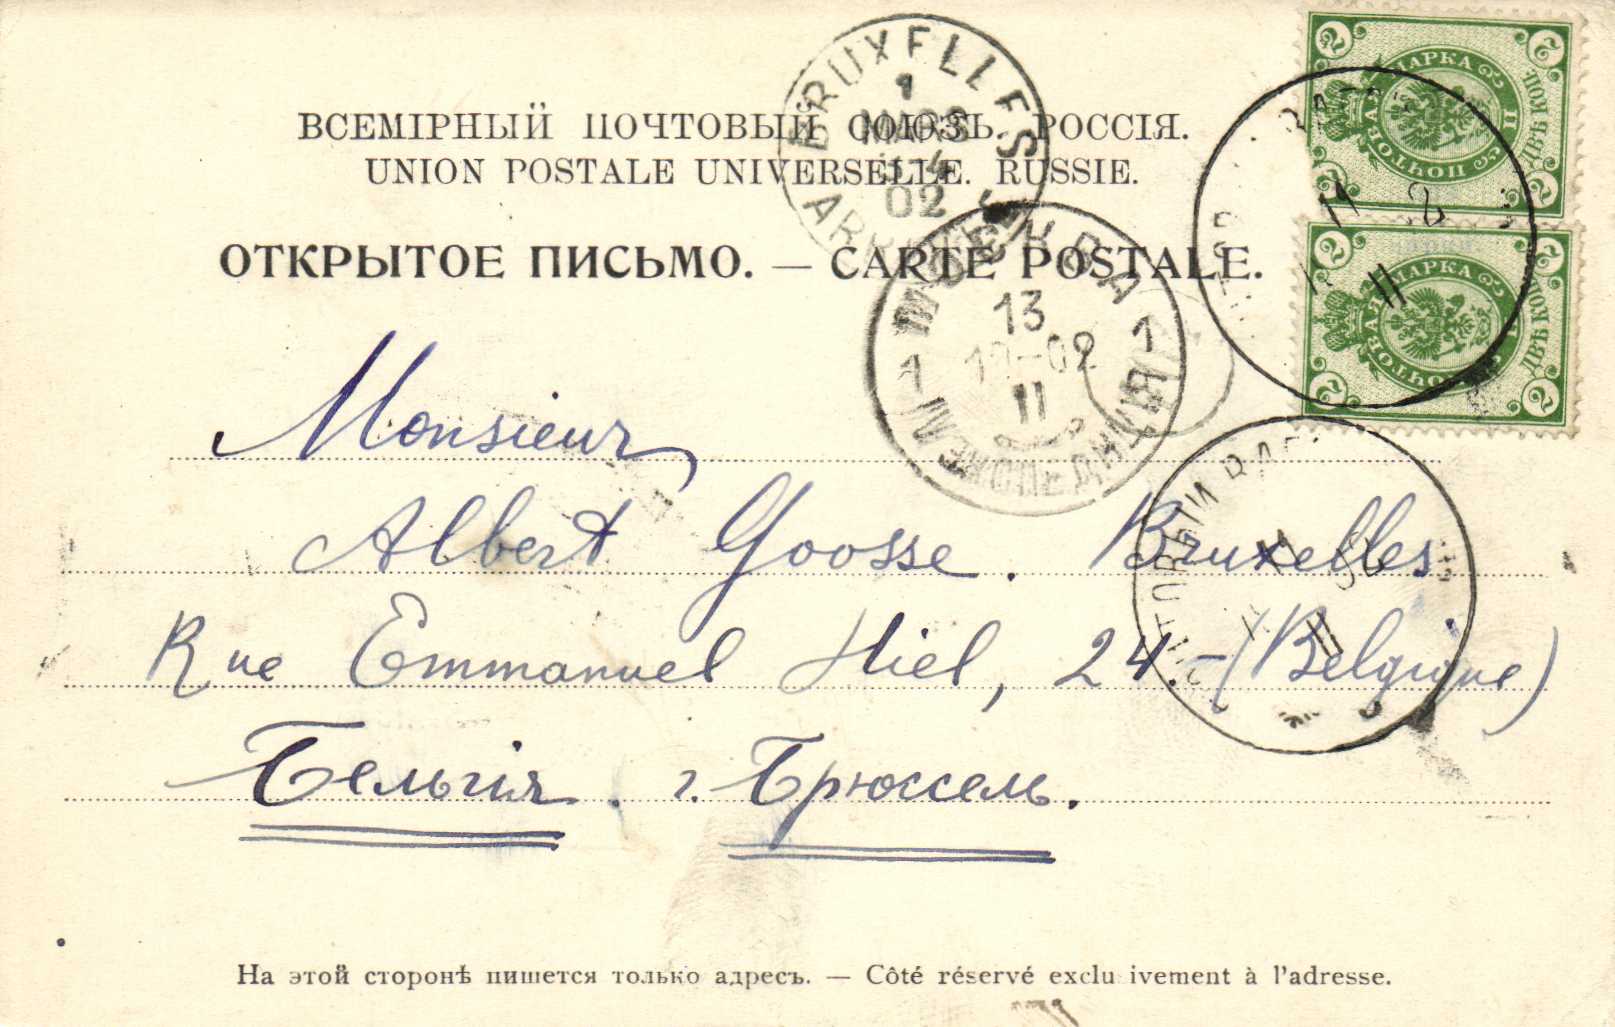 ВСЕМІРНЫЙ ПОЧТОВЫЙ СОЮЗЪ. РОССІЯ.
UNION POSTALE UNIVERSELLE. RUSSIE.
ОТКРЫТОЕ ПИСЬМО. — CARTE POSTALE.
BRUXELLES
1
MARS
4
02
МОСКВА
13
02
II
1
1
МАРКА
ПОЧТОВАЯ
ДВѢ КОП.
2
2
2
2
МАРКА
ПОЧТОВАЯ
ДВѢ КОП.
2
2
2
2
11
2
II
11
II
Monsieur
Albert Goosse. Bruxelles
Rue Emmanuel Hiel, 24.-(Belgique)
Бельгія. г. Брюссель.
На этой сторонѣ пишется только адресъ. — Côté réservé exclu ivement à l'adresse.